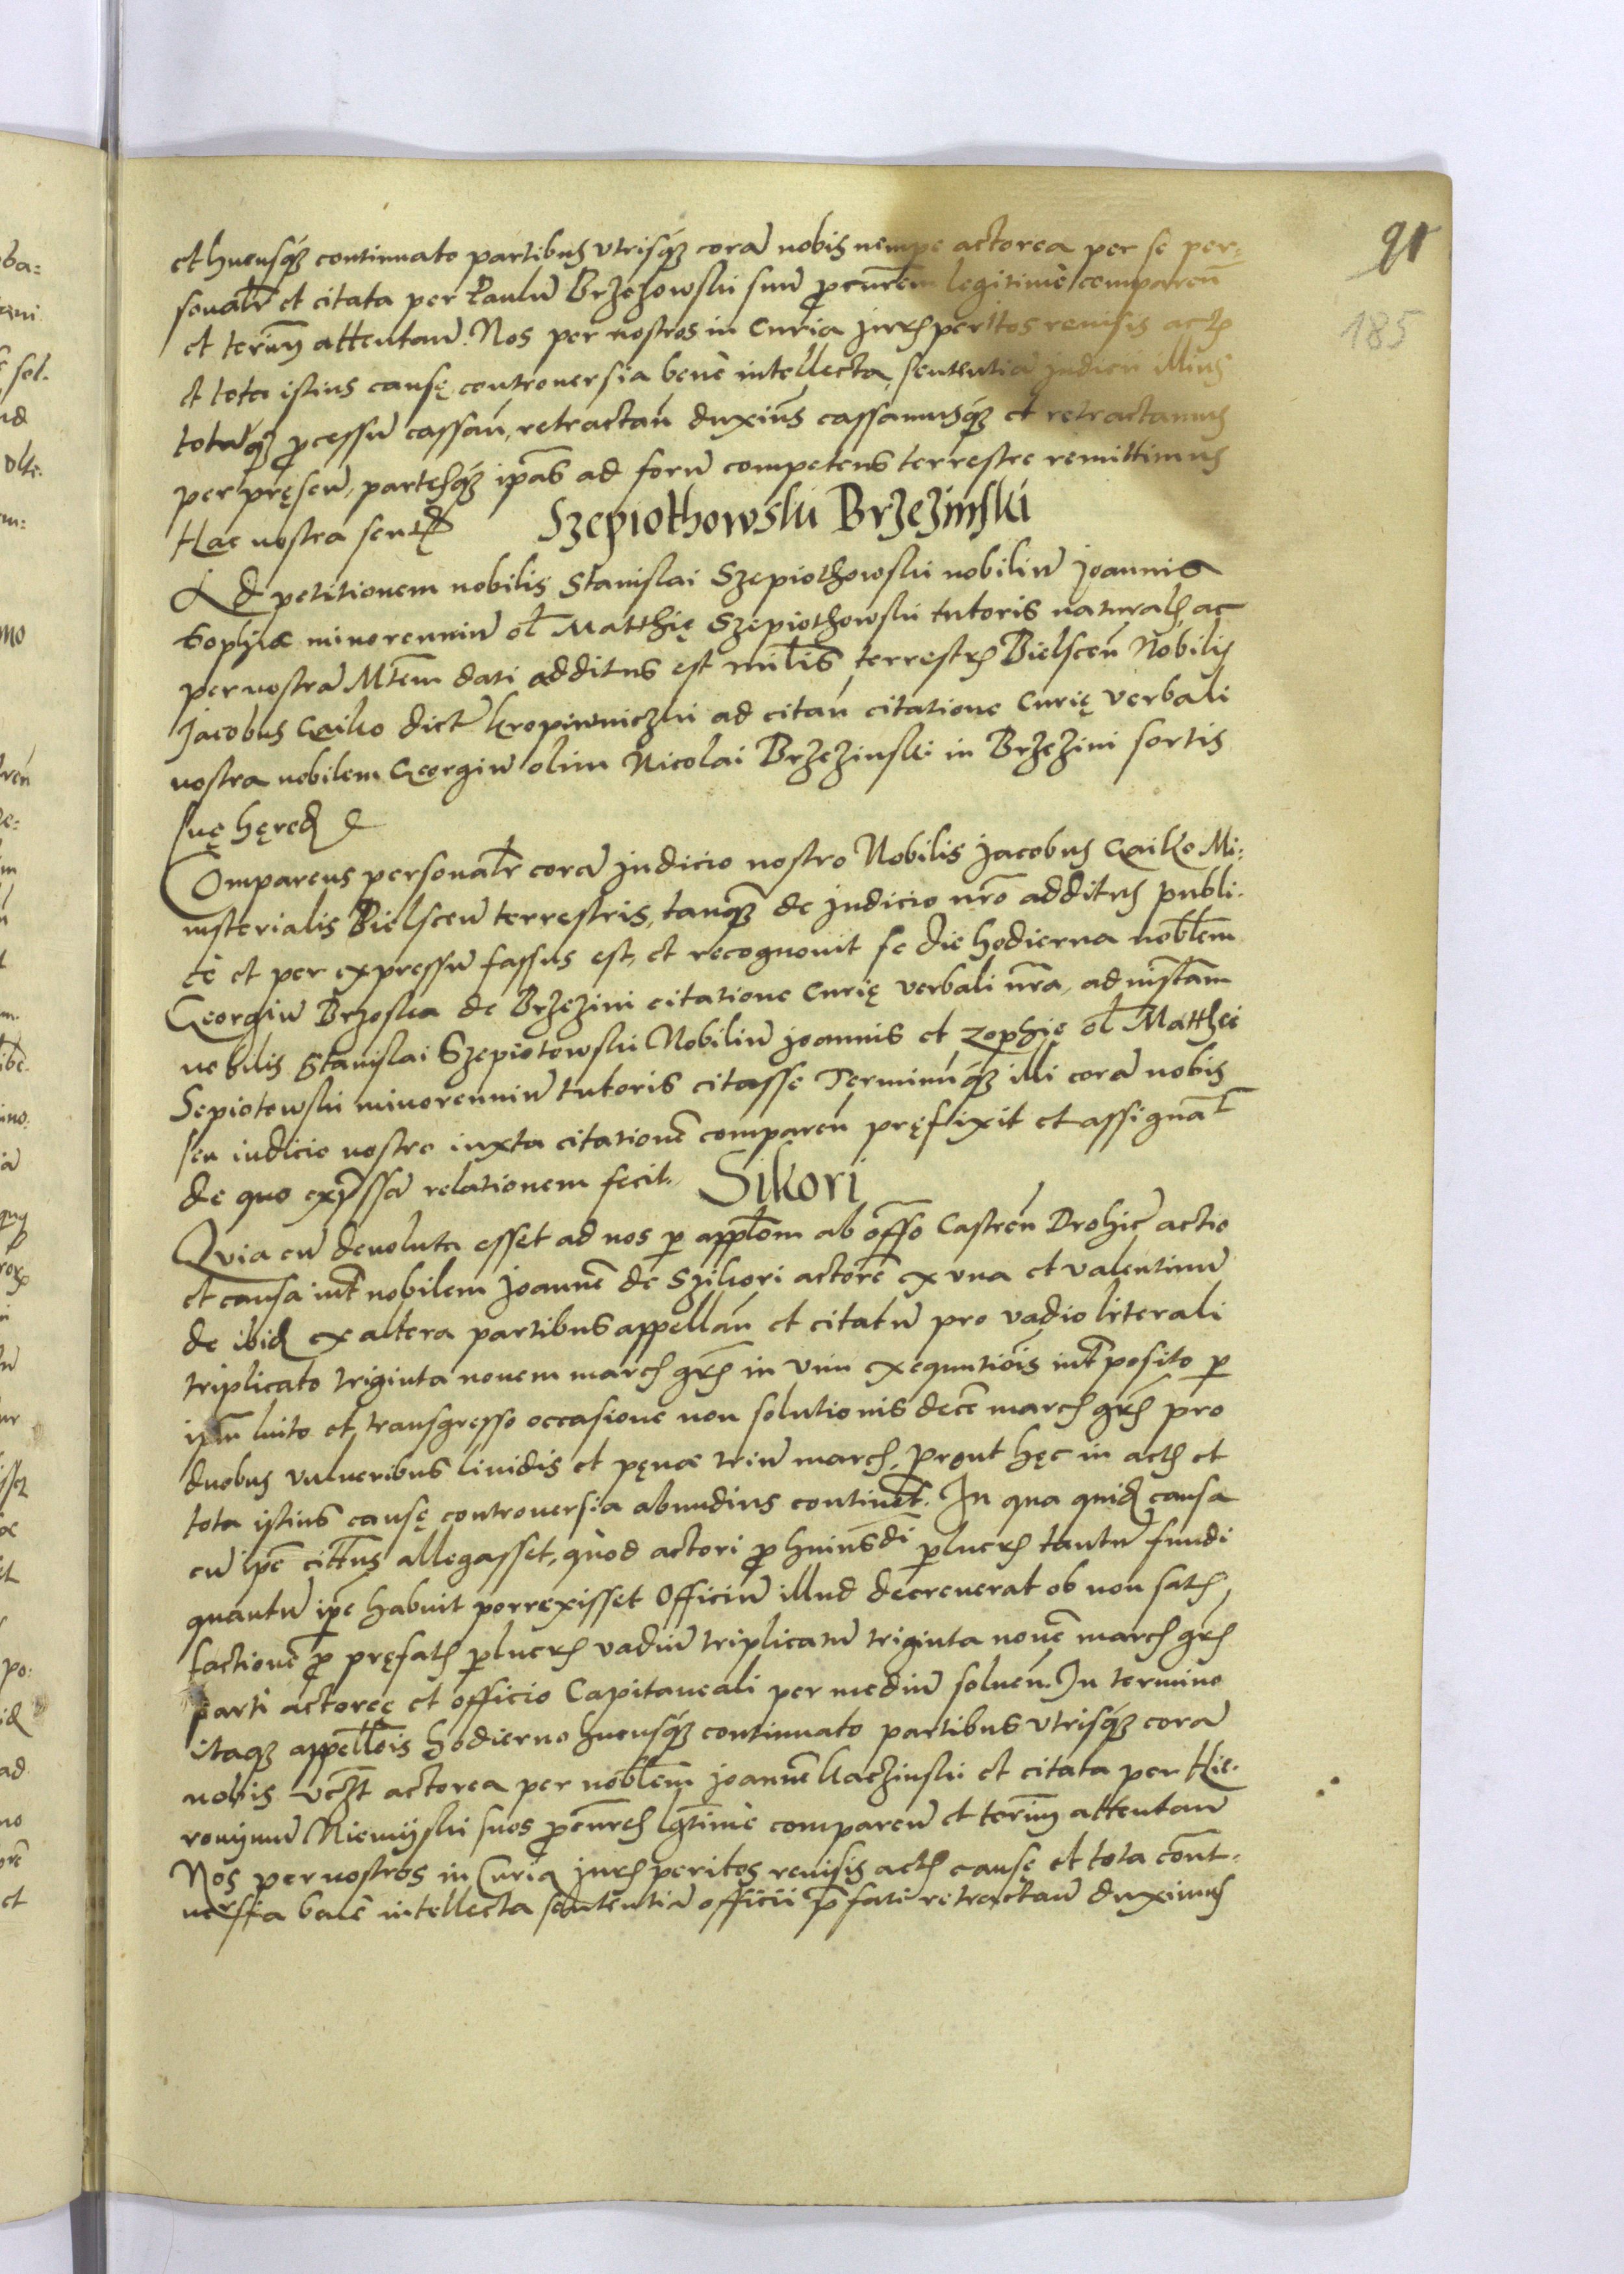 91
185
et hucusq₃ continuato partibus vtrisq₃ corā nobis nempe actorea per se per=
sonalr̄ et citata per Paulū Brzezowski suū ꝓcurēm legitimè comparen̄
et teriūm attentan̄. Nos per nostros in Curia juris peritos reuisis actis
et tota istius causę controuersia benè intellecta, sententiā judicii illius
totāq₃ ꝓcessū cassan̄, retractan̄ duxim̄s cassamusq₃ et retractamus
per pręsen̄, partesq₃ ipās ad forū competens terrestre remittimus
Hac nostra sent
Szepiothowski Brzezinski
Ad petitionem nobilis Stanislai Szepiothowski nobiliū Joannis
Sophiæ minorenniū ol̄ Matthię Szepiothowski tutoris naturalis, ac
per nostrā Mtēm dati additus est mīlis terrestris Bielscen̄ Nobilis
Jacobus Gaiko dict kropiwniczki ad citan̄ citatione Curię verbali
nostra nobilem Georgiū olim Nicolai Brzezinski in Brzezini sortis
suę hęred
Comparens personalr̄ corā judicio nostro Nobilis Jacobus Gaiko Mi=
nisterialis Bielscen̄ terrestris, tanq₃ de judicio nr̄o additus publi=
cè et per expressū fassus est, et recognouit se die hodierna noblēm
Georgiū Brzoska de Brzezini citatione Curię verbali nr̄a, ad instam̄
nobilis Stanislai Szepiotowski Nobiliū Joannis et Zophię ol̄ Matthei
Sepiotowski minorenniū tutoris citasse Terminūq₃ illi corā nobis
seu iudicio nostro iuxta citationē comparen̄ pręfixit et assignat̄
de quo exp̄ssā relationem fecit.
Sikori
Qvia cū deuoluta esset ad nos p̱ applōm ab off̄o Castren̄ Drohic̄ actio
et causa int̄ nobilem Joannē de Szikori actorē ex vna et valentinū
de ibid ex altera partibus appellan̄ et citatū pro vadio literali
triplicato triginta nouem march grh in vim exequutiōis int̄posito p̱
ipm̄ luito et transgresso occasione non solutionis decē march grh pro
duobus vulneribus liuidis et pęnæ triū march, prout hęc in actis et
tota istius causę controuersia abundius continet̄. In qua quid causa
cū ipē cittus allegasset, quod actori ꝓ huiusdi p̱lucris tantū fundi
quantū ipē habuit porrexisset Officiū illud decreuerat ob non satis
factionē ꝓ pręfatis p̱lucris vadiū triplicatū triginta nouē march grh
parti actoreę et officio Capitaneali per mediū soluen̄. In termino
itaq₃ appellōis hodierno hucusq₃ continuato partibus vtrisq₃ corā
nobis vczt actorea per noblēm Joannē kaczinski et citata per Hie=
ronymū Niemyski suos ꝓcurēs lgtimè comparen̄ et teriūm attentan̄
Nos per nostros in Curia juris peritos reuisis actis causę et tota cont̄=
uersia benè intellecta sententiā officii p̄fati retractan̄ duximus